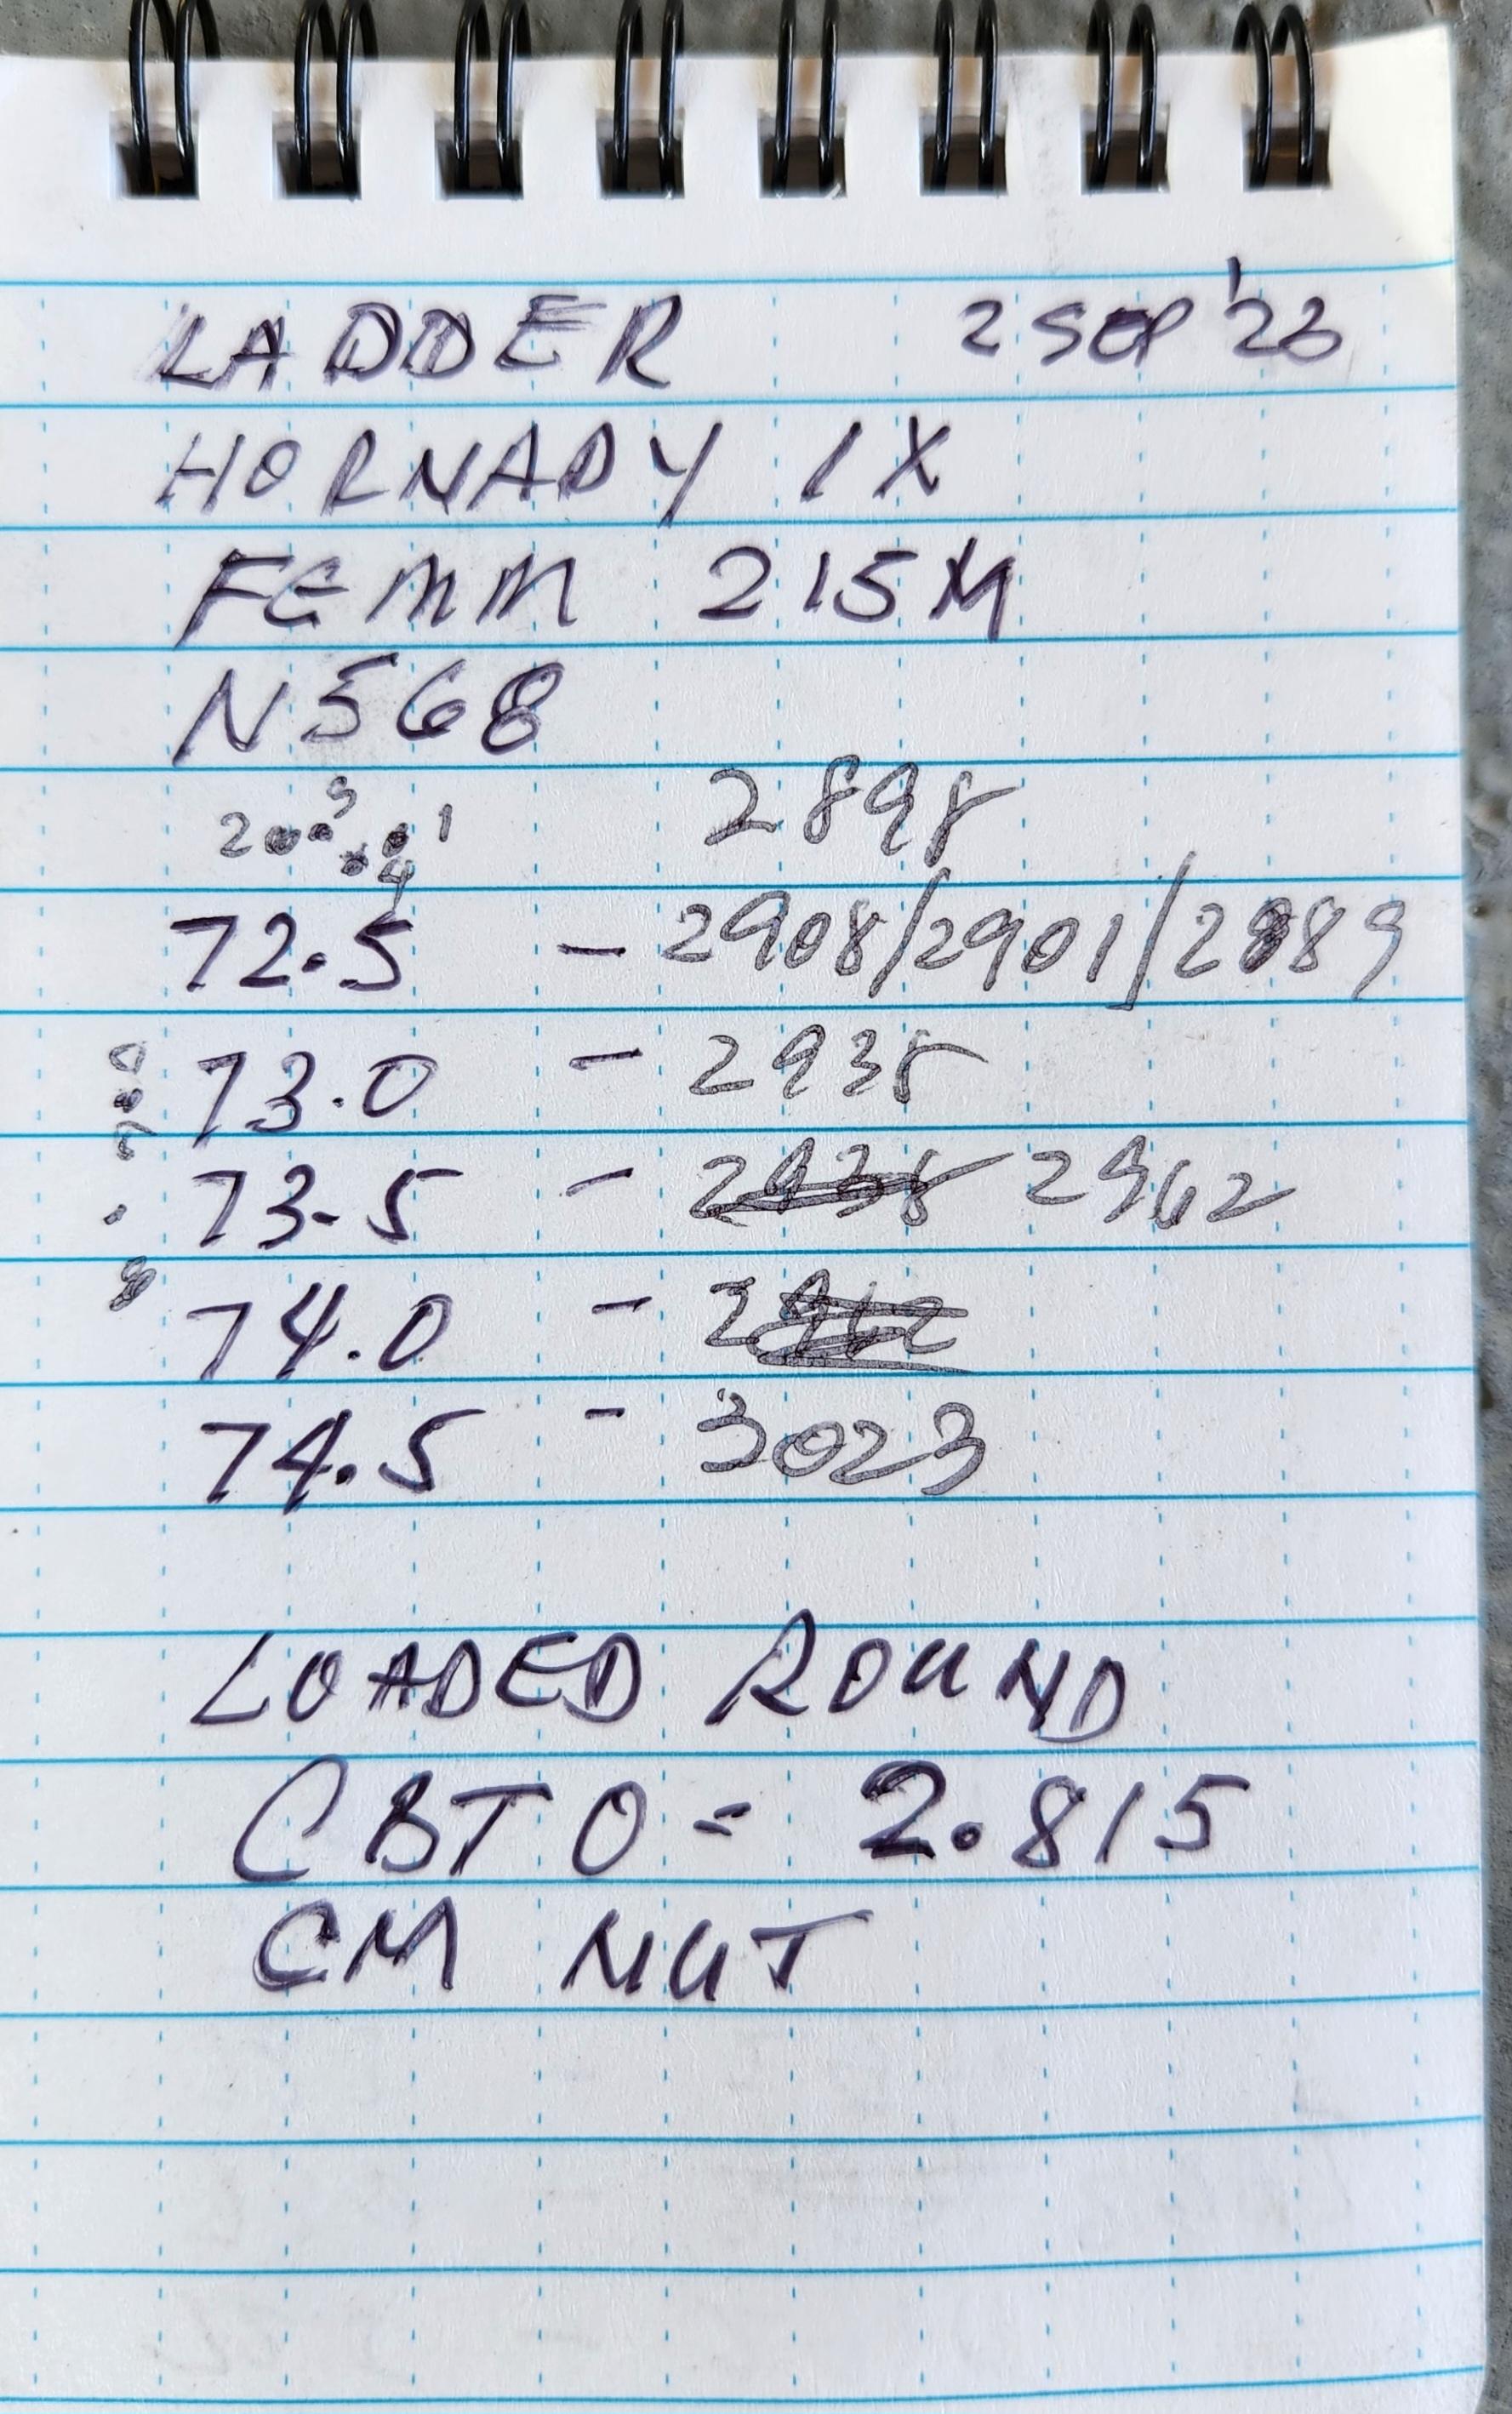 LADDER 2 SEP '23
HORNADY 1X
FEMM 215M
N568
2 3 1 2898
4
72.5 - 2908/2901/2889
73.0 - 2938
73.5 - 2938 2962
74.0 - 2962
74.5 - 3023
LOADED ROUND
CBTO = 2.815
CM NUT